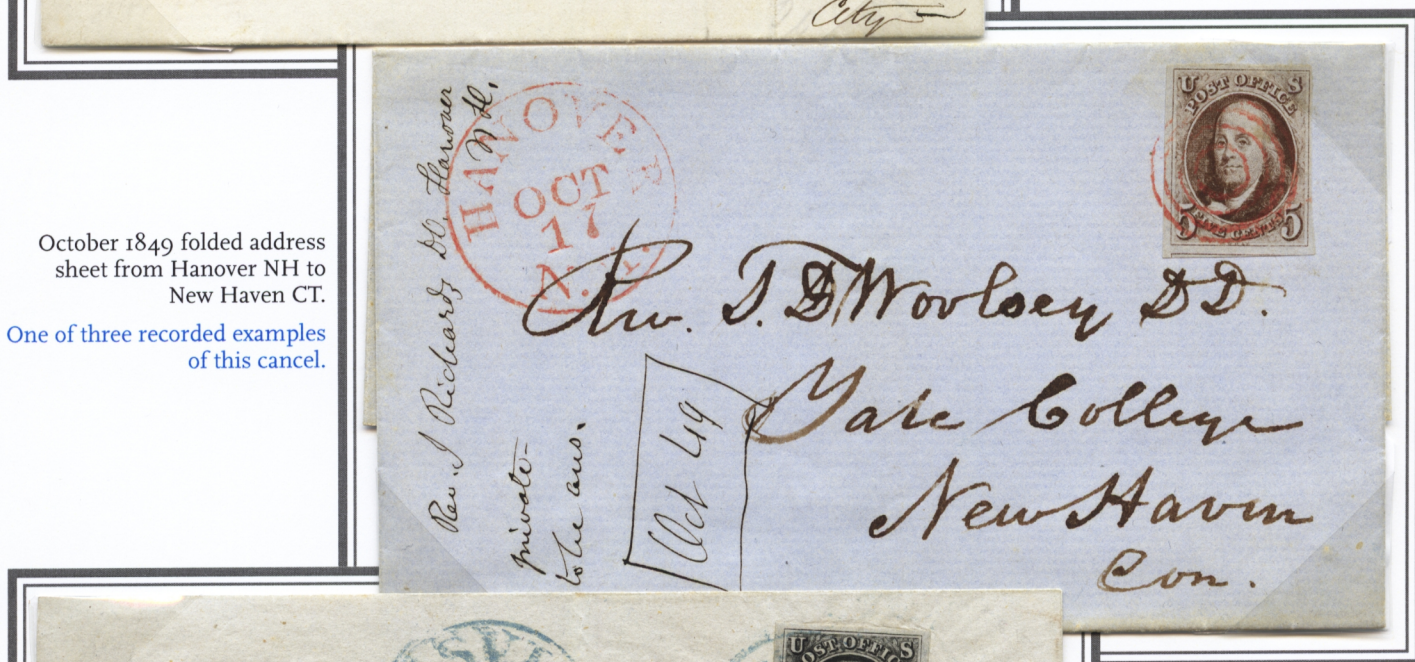 City
October 1849 folded address
sheet from Hanover NH to
New Haven CT.
One of three recorded examples
of this cancel.
Rev. J Richards DD. Hanover
N H.
HANOVER
OCT
17
N.
U S
POST OFFICE
5 FIVE CENTS 5
Rev. T. D Woolsey DD.
Yale College
New Haven
Con.
private-
to be ans.
Oct 49
U S
POST OFFICE